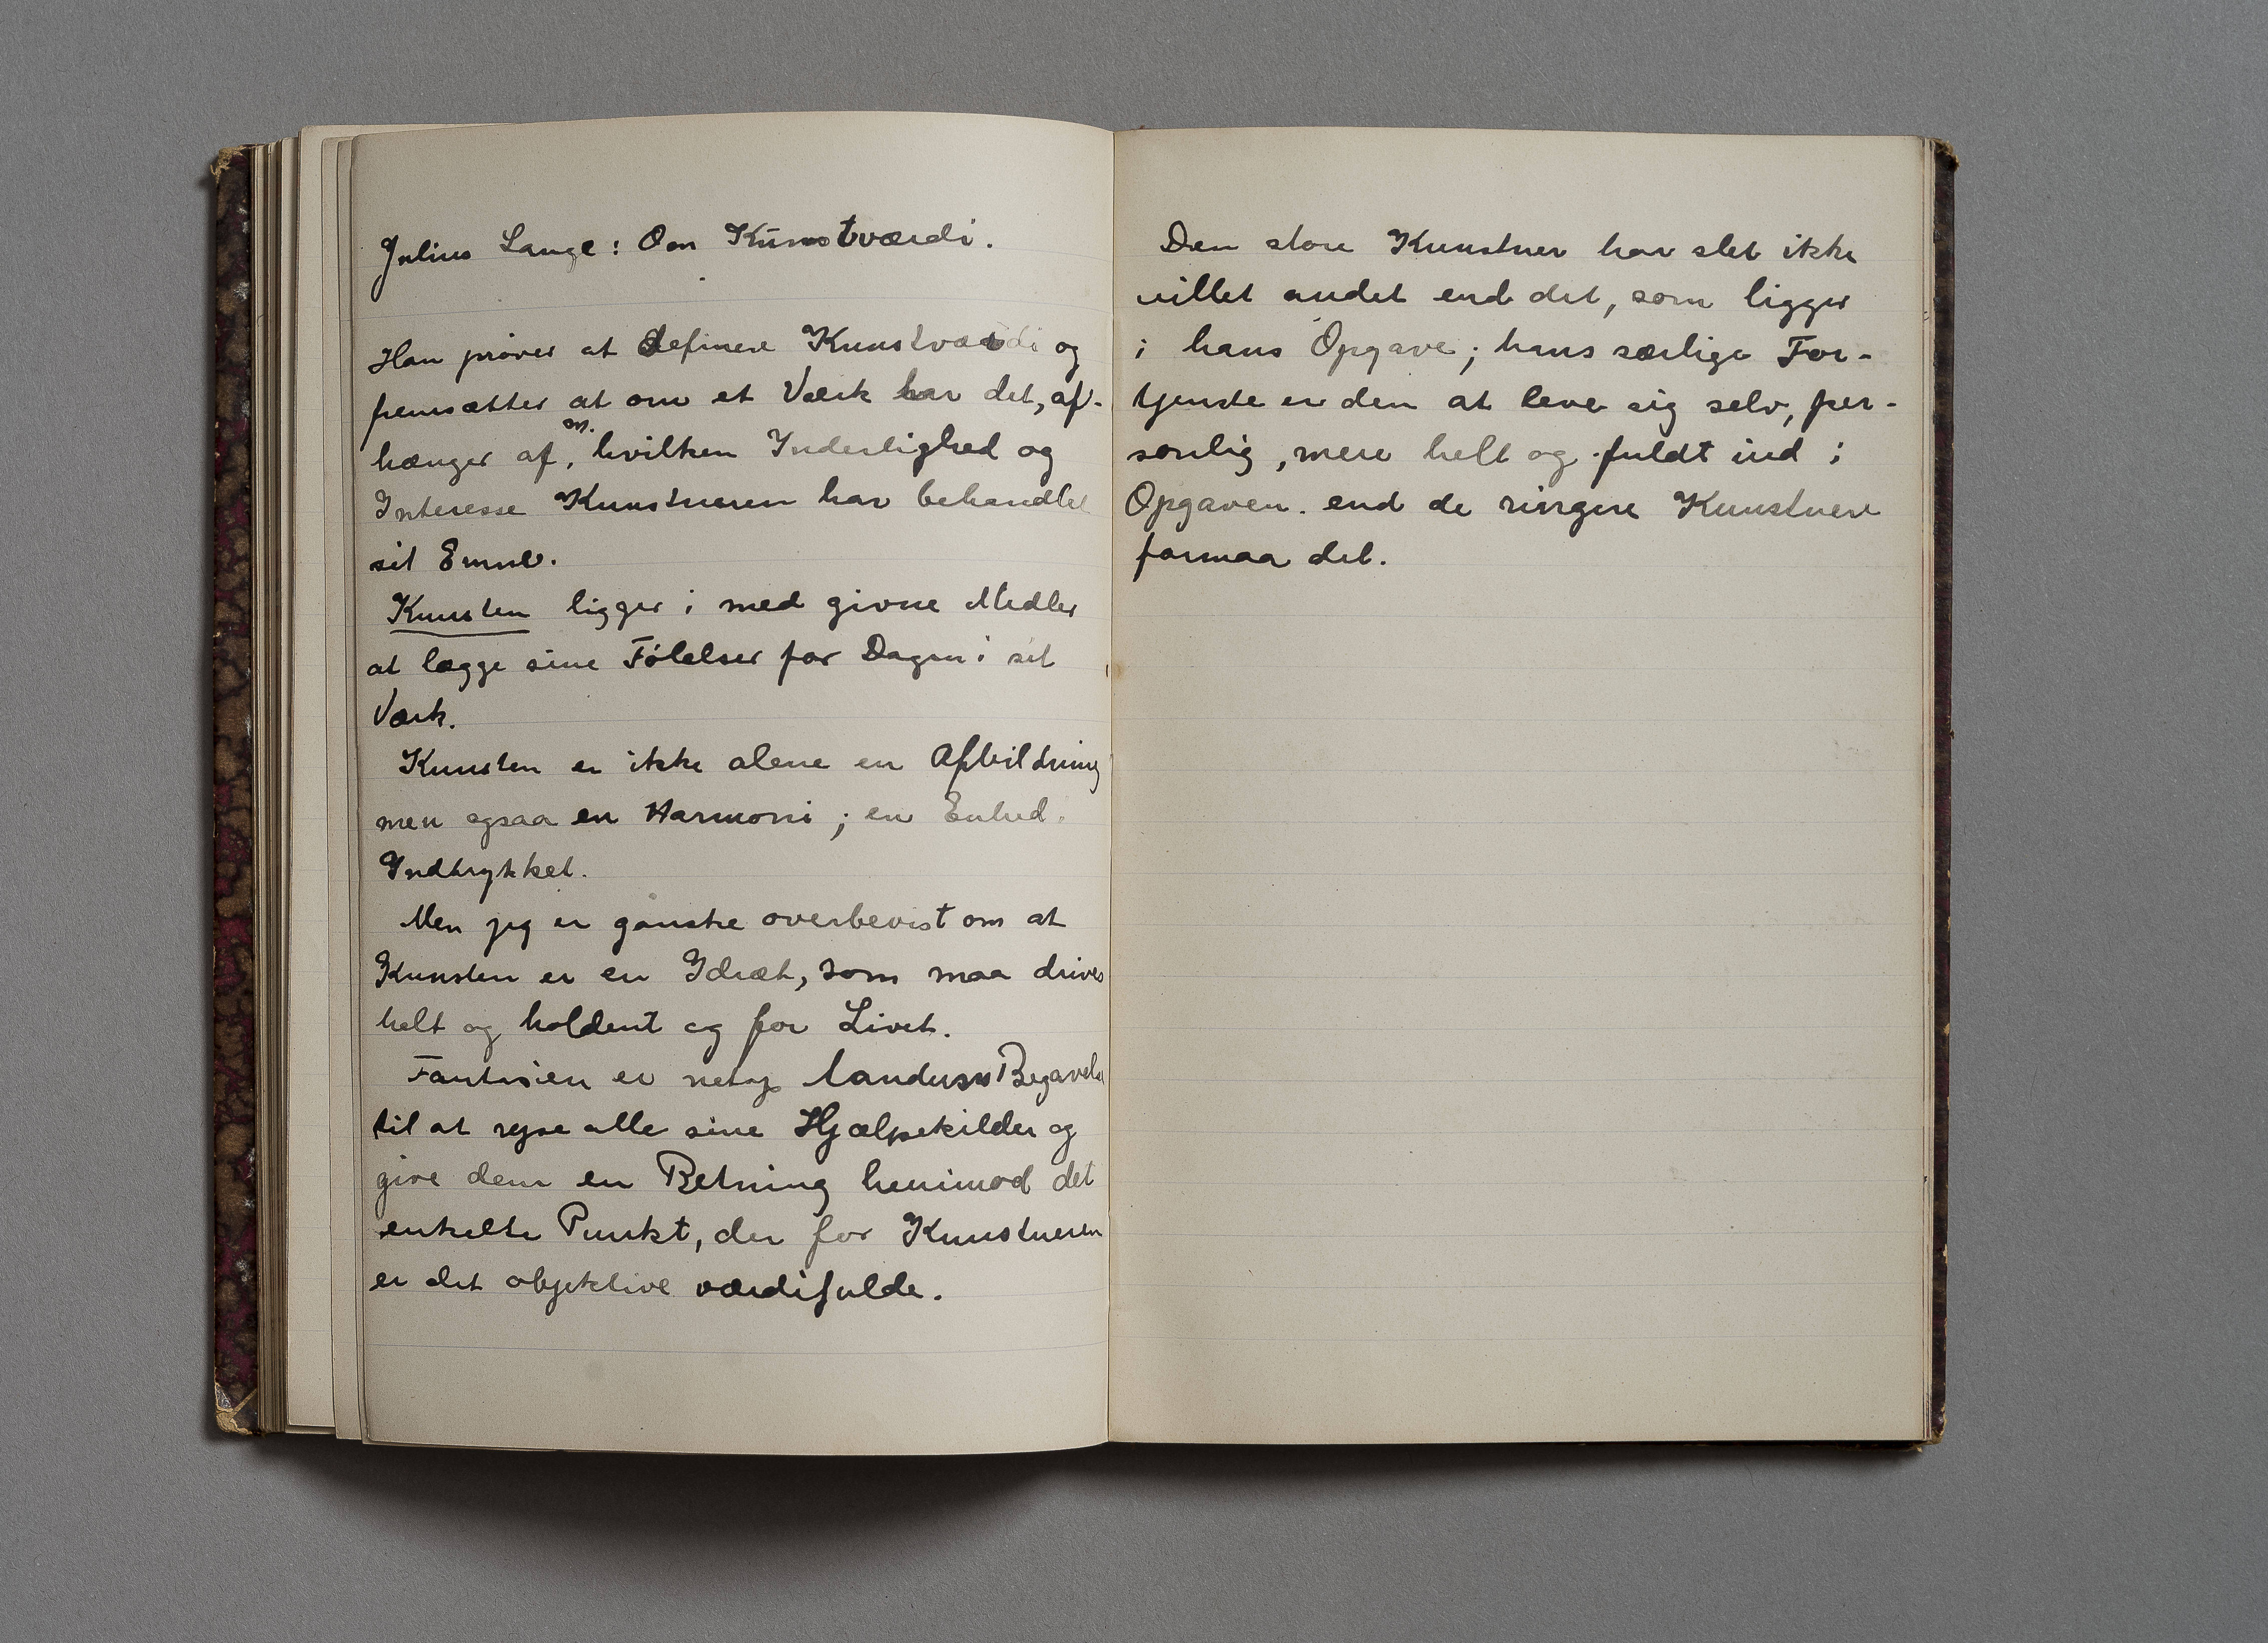 Julius Lange: Om Kunstværdi.
Han prøver at definere Kunstværdi og
fremsætter at om et Værk har det, af-
hænger af, m. hvilken Inderlighed og
Interesse Kunstneren har behandlet
sit Emne.
Kunsten ligger i med givne Midler
at lægge sine Følelser for Dagen i sit
Værk.
Kunsten er ikke alene en Afbildning
men ogsaa en Harmoni; en Enhed.
Indtrykket.
Men jeg er ganske overbevist om at
Kunsten er en Idræt, som maa drives
helt og holdent og for Livet.
Fantasien er netop Aandens Begavelse
til at rejse alle sine Hjælpekilder og
give dem en Retning henimod det
enkelte Punkt, der for Kunstneren
er det objektive værdifulde.
Den store Kunstner har slet ikke
villet andet end det, som ligger
i hans Opgave; hans særlige For-
tjeneste er den at leve sig selv, per-
sonlig, mere helt og fuldt ind i
Opgaven. end de ringere Kunstnere
formaa det.